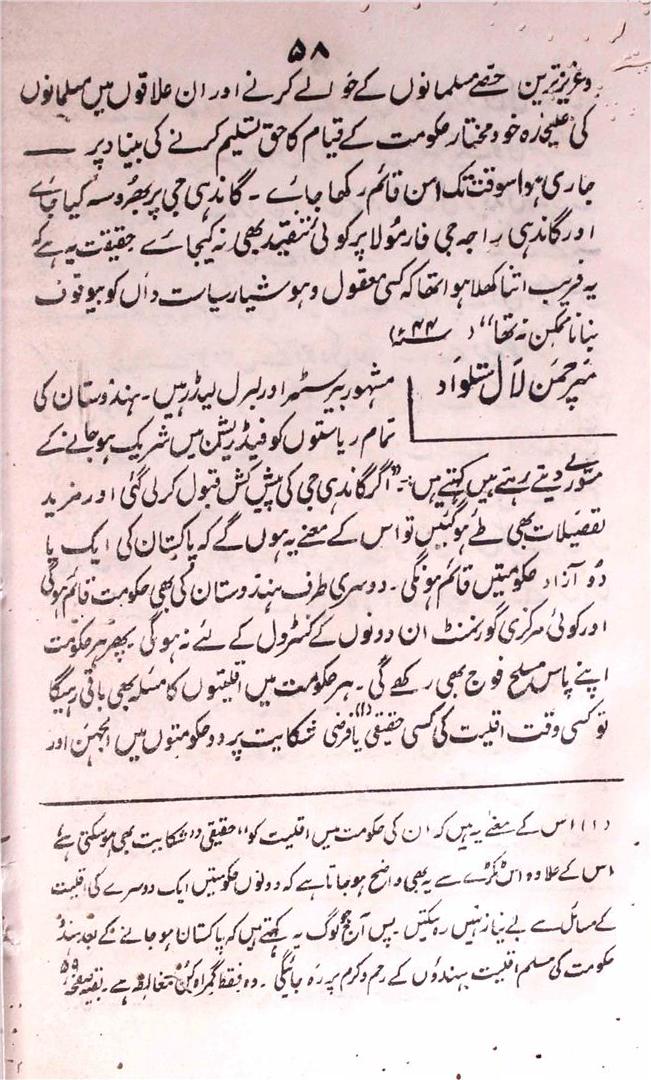 ۵۸
و عزیز ترین حصے مسلمانوں کے حوالے کرنے اور ان علاقوں میں مسلمانوں
کی علیحدہ خود مختار حکومت کے قیام کا حق تسلیم کرنے کی بنیاد پر —
جاری ہو اسوقت تک امن قائم رکھا جائے ۔ گاندھی جی پر بھروسہ کیا جائے
اور گاندھی راجہ جی فارمولا پر کوئی تنقید بھی نہ کیجائے حقیقت یہ ہے کہ
یہ فریب اتنا کھلا ہوا تھا کہ کسی معقول و ہوشیار سیاست داں کو بیوقوف
بنانا ممکن نہ تھا“ ( ۴۴ء )
سر چمن لال ستلواد
مشہور بیرسٹر اور لبرل لیڈر ہیں ۔ ہندوستان کی
تمام ریاستوں کو فیڈریشن میں شریک ہو جانے کے
مشورے دیتے رہتے ہیں کہتے ہیں ۔ ”اگر گاندھی جی کی پیش کش قبول کر لی گئی اور مزید
تفصیلات بھی طے ہو گئیں تو اس کے معنے یہ ہوں گے کہ پاکستان کی ایک یا
دو آزاد حکومتیں قائم ہونگی ۔ دوسری طرف ہندوستان کی بھی حکومت قائم ہوگی
اور کوئی مرکزی گورنمنٹ ان دونوں کے کنٹرول کے لئے نہ ہوگی پھر ہر حکومت
اپنے پاس مسلح فوج بھی رکھے گی ۔ ہر حکومت میں اقلیتوں کا مسئلہ بھی باقی رہیگا
تو کسی وقت اقلیت کی کسی حقیقی (۱) یا فرضی شکایت پر دو حکومتوں میں الجھن اور
(۱) اس کے معنے یہ ہیں کہ ان کی حکومت میں اقلیت کو ”حقیقی“ شکایت بھی ہو سکتی ہے
اس کے علاوہ اس ٹکڑے سے یہ بھی واضح ہو جاتا ہے کہ دونوں حکومتیں ایک دوسرے کی اقلیت
کے مسائل سے بے نیاز نہیں رہ سکتیں ۔ پس آج جو لوگ یہ کہتے ہیں کہ پاکستان ہو جانے کے بعد ہندو
حکومت کی مسلم اقلیت ہندوؤں کے رحم و کرم پر رہ جائیگی ۔ وہ فقط گمراہ کن مغالطہ ہے ۔ بقیہ صفحہ ۵۹